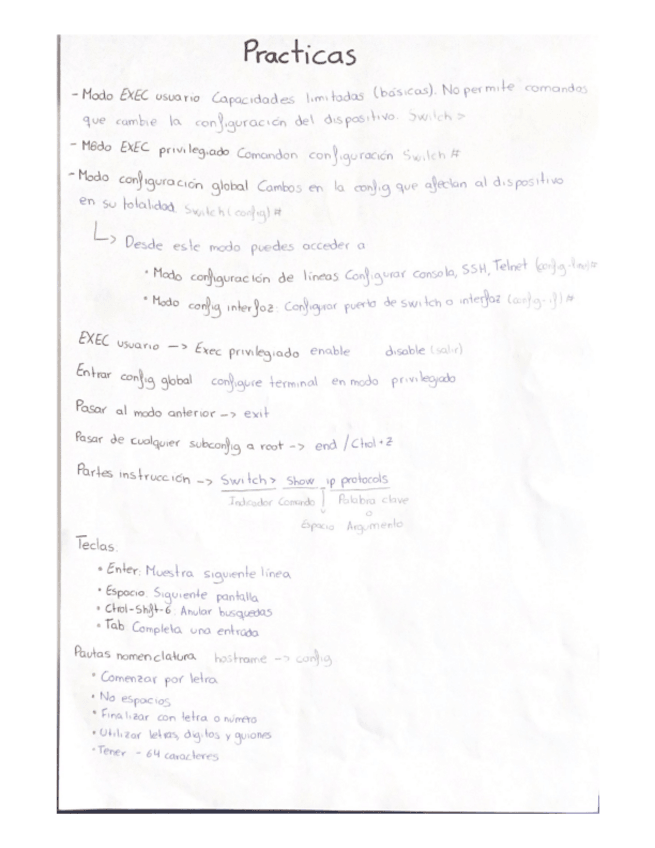 Practicas
- Modo EXEC usuario Capacidades limitadas (básicas). No permite comandos
que cambie la configuración del dispositivo. Switch>
- Modo EXEC privilegiado Comandon configuración Switch #
- Modo configuración global Cambos en la config que afectan al dispositivo
en su totalidad. Switch(config)#
↳ Desde este modo puedes acceder a
• Modo configuración de lineas Configurar consola, SSH, Telnet (config-line)#
• Modo config interfaz: Configurar puerto de switch o interfaz (config-if)#
EXEC usuario -> Exec privilegiado enable disable (salir)
Entrar config global configure terminal en modo privilegiado
Pasar al modo anterior -> exit
Pasar de cualquier subconfig a root -> end / Ctrol+z
Partes instrucción -> Switch> Show ip protocols
Indicador Comando ↓ Palabra clave
o
Espacio Argumento
Teclas:
• Enter: Muestra siguiente línea
• Espacio: Siguiente pantalla
• Ctrol-Shift-6: Anular busquedas
• Tab Completa una entrada
Pautas nomenclatura hostname -> config
• Comenzar por letra
• No espacios
• Finalizar con letra o número
• Utilizar letras, digitos y guiones
• Tener - 64 caracteres